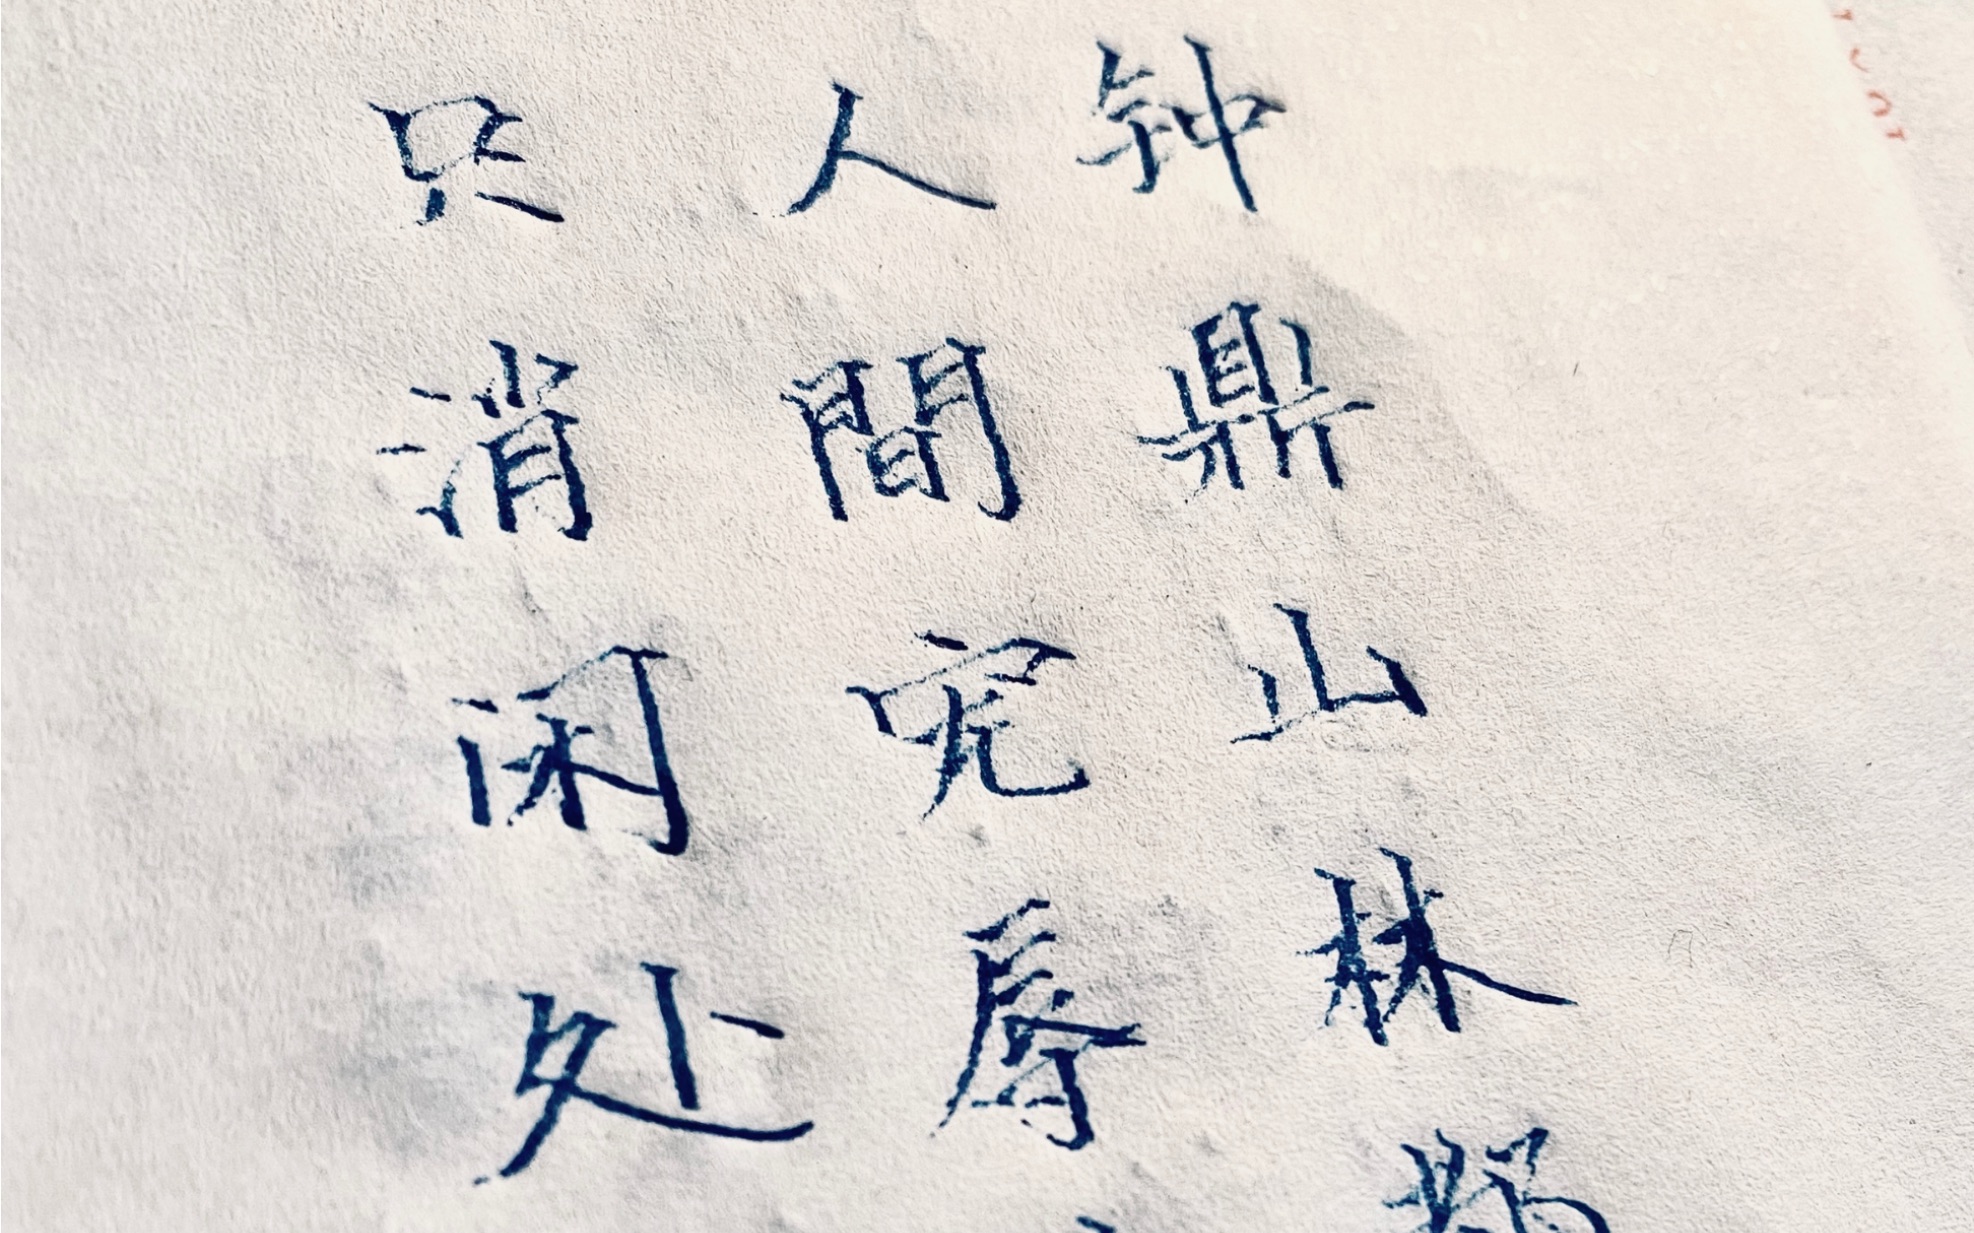 钟鼎山林
人間宠辱
只消闲处